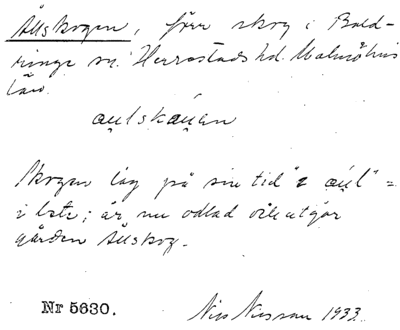 Ållskogen, förr skog i Bald-
ringe sn. Herrestads hd. Malmöhus
län.
au̯lskáu̯en
Skogen låg på sin tid "i au̯l" =
i bete; är nu odlad och utgör
gården Ållskog.
Nr 5630.
Nils Nilsson 1933.